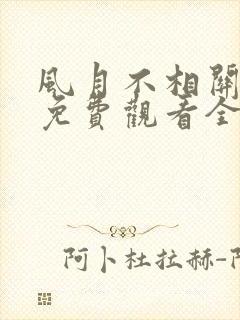 風月不相關
免費觀看全
阿卜杜拉赫-阿